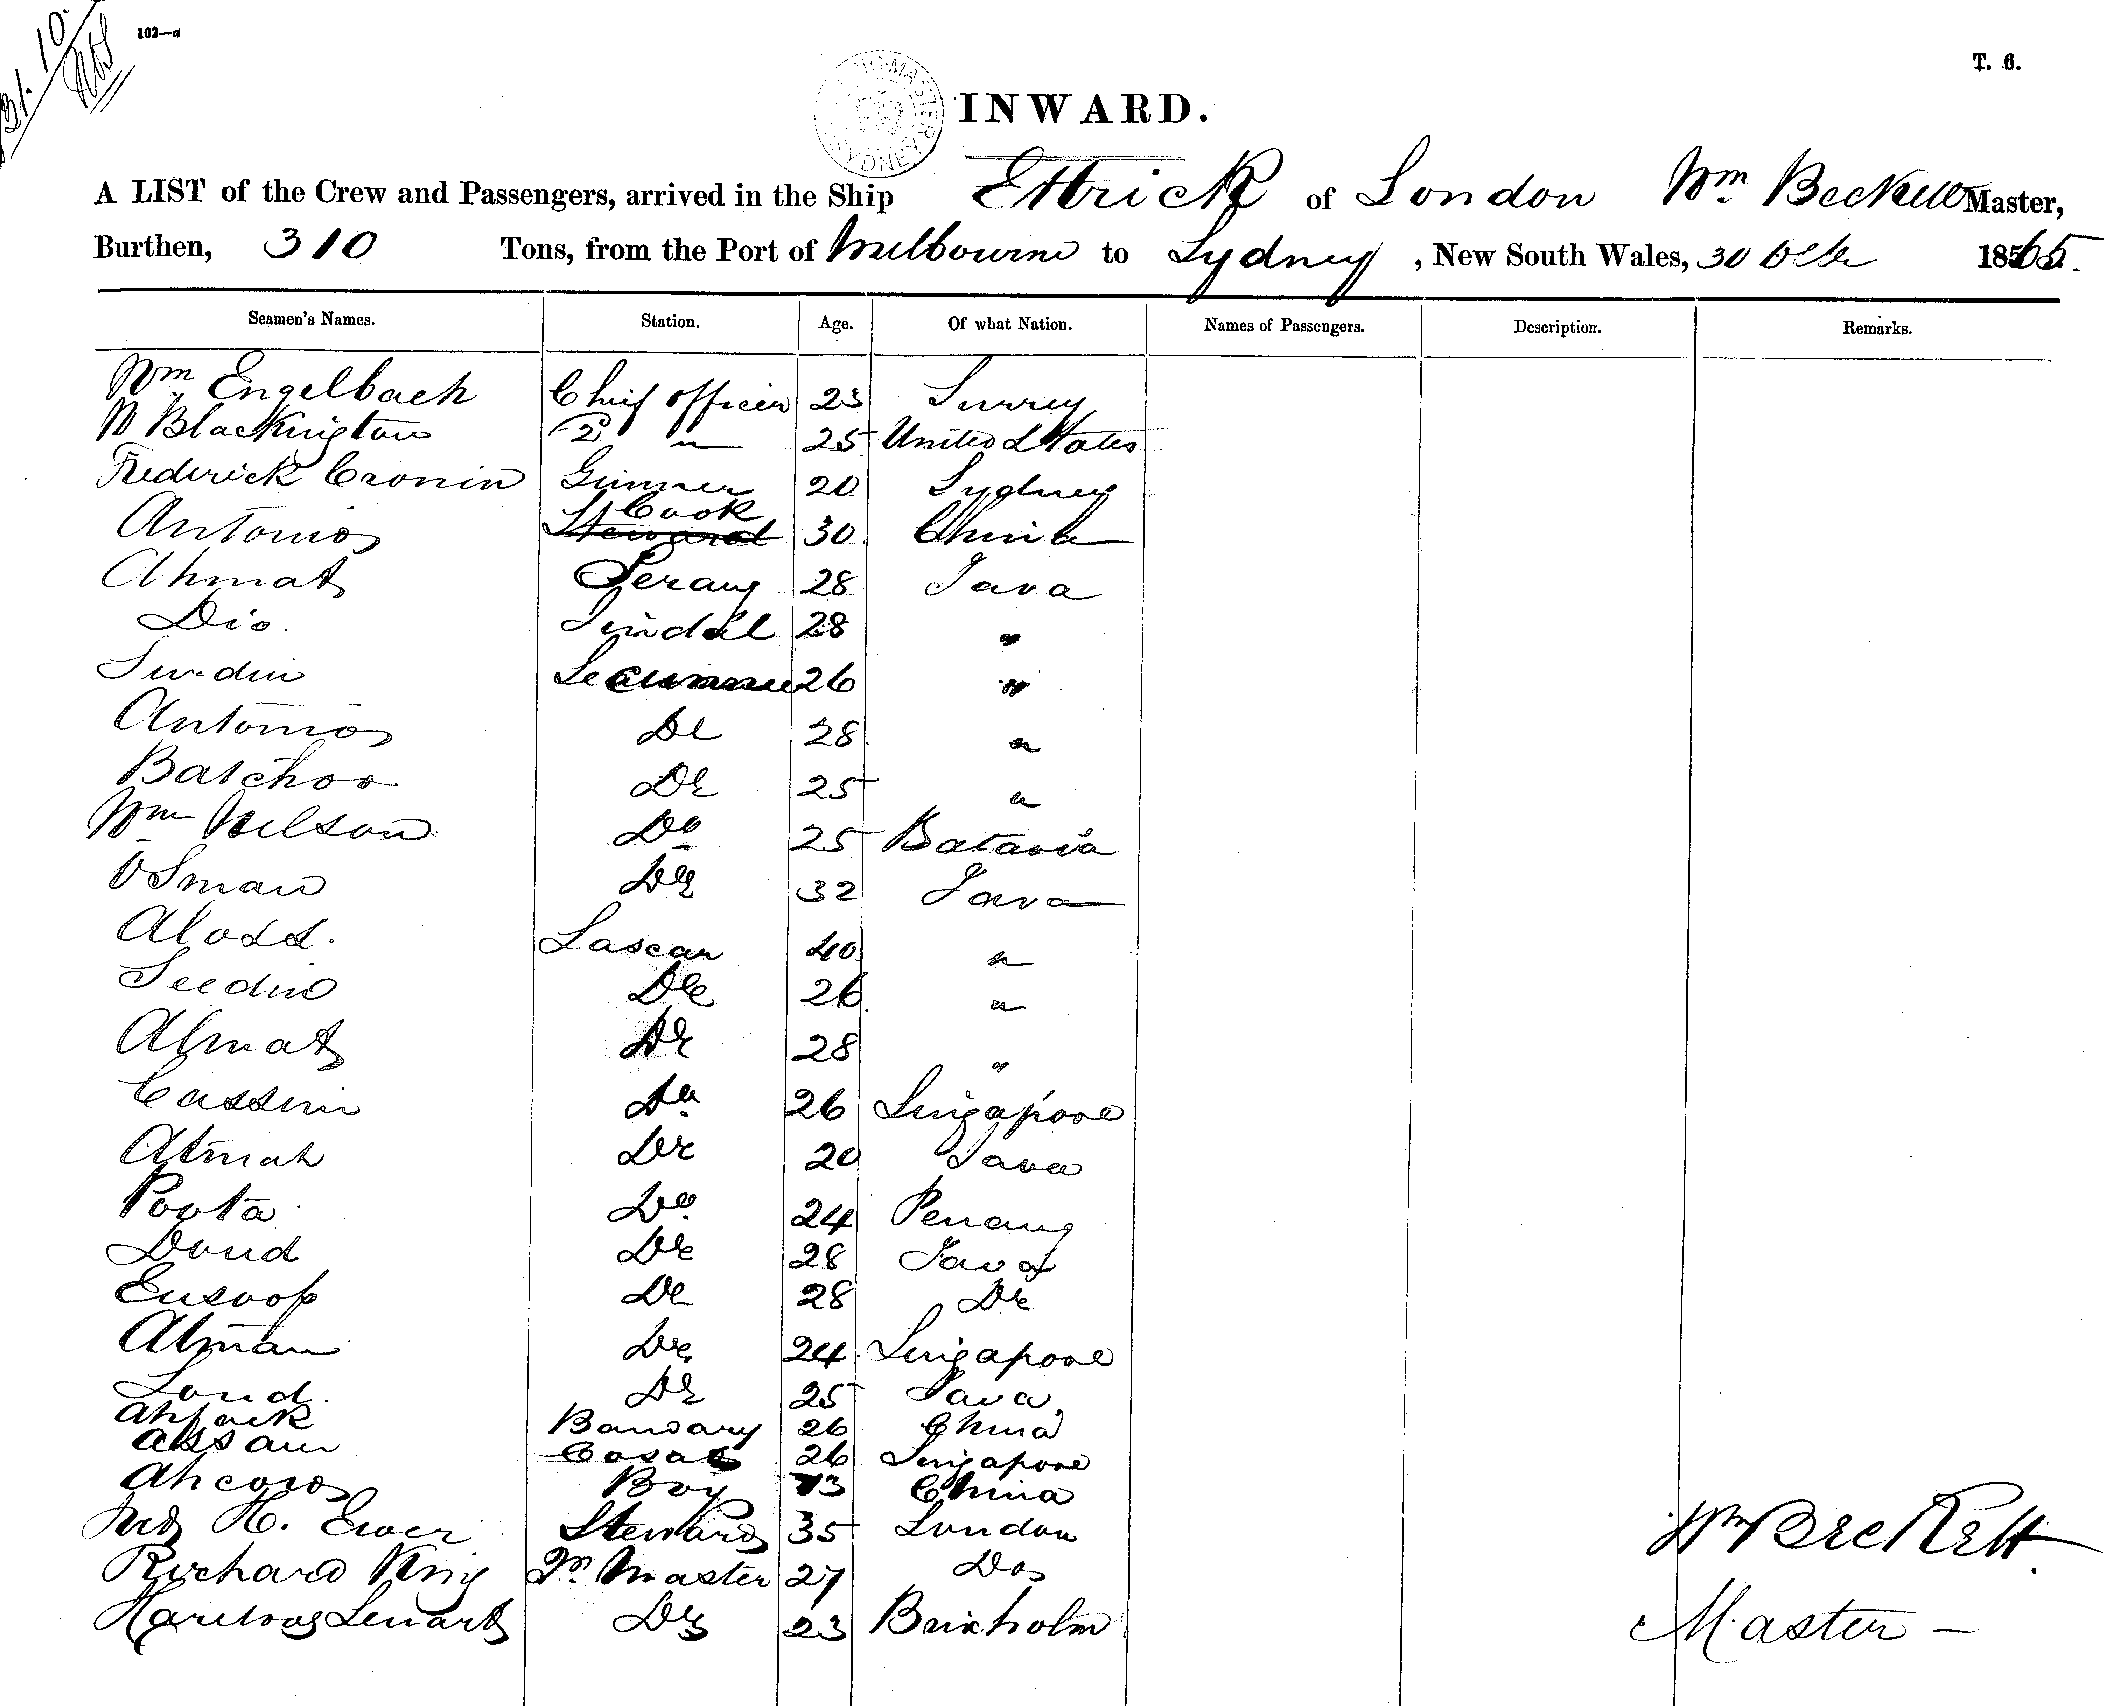 31.10
102—a
T. 6.
INWARD.
A LIST of the Crew and Passengers, arrived in the Ship Ettrick of London Wm Beckett Master,
Burthen, 310 Tons, from the Port of Melbourne to Sydney, New South Wales, 30 1865.
Seamen's Names. Station. Age. Of what Nation. Names of Passengers. Description. Remarks.
Wm Engelbach Chief officer 23 Surrey
Blackington 2 " 25 United States
Frederick Cronin Gunner 20 Sydney
Antonio Steward Cook 30 China
Ahmat Serang 28 Java
Dio. Tindal 28 "
Secunnie 26 "
Antonio Do 28 "
Batchoo Do 25 "
Wm Nelson Do 25 Batavia
Osman Do 32 Java
Lascar 40 "
Seedin Do 26 "
Almat Do 28 "
Cassim Do 26 Singapore
Do 20 Java
Poota Do 24 Penang
Do 28 Java
Eusoof Do 28 Do
Do 24 Singapore
Do 25 Java
26 China
Assam 26 Singapore
Ahcow Boy 13 China
H. Ewer Steward 35 London
Richard King Qr Master 27 Do
Do 23 Brixholm
Wm Beckett
Master —